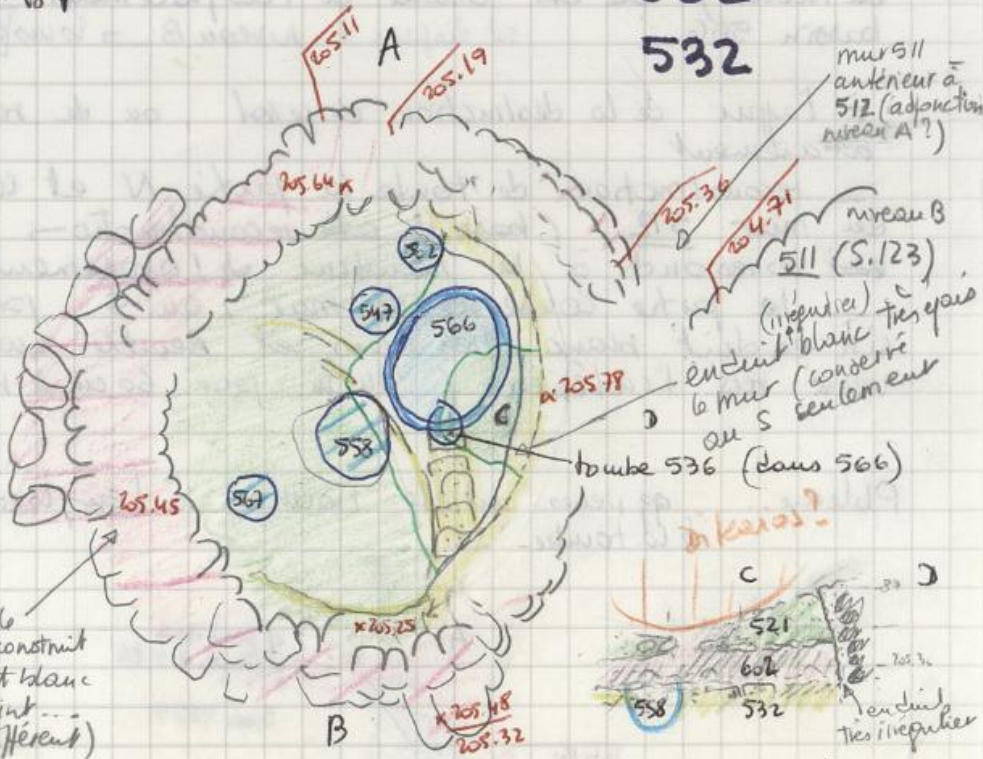 532
A
205.11
205.19
mur 511
antérieur à
512 (adjonction
niveau A ?)
205.64
205.36
204.71
niveau B
511 (S.123)
(irrégulier)
enduit blanc très épais
mur (conservé
au S seulement
547
566
205.78
C
D
558
tombe 536 (dans 566)
567
205.45
Dikaios ?
construit
blanc
205.25
B
205.48
205.32
C
D
521
602
558
532
enduit
très irrégulier